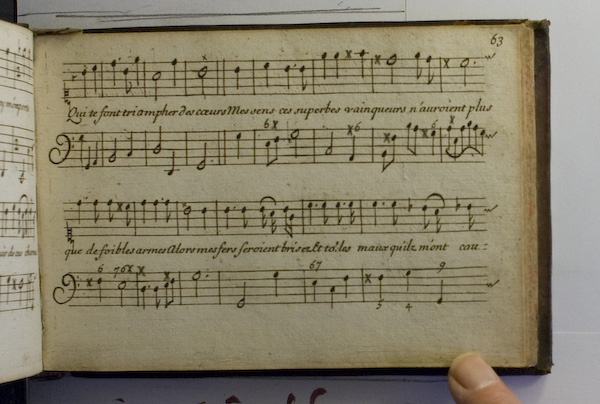 63
Qui te font triompher des cœurs Mes sens ces superbes vainqueurs n'auroient plus
6
6
6
que de foibles armes Alors mes fers seroient brisez Et to9 les maux qu'ilz m'ont cau-
6 76 67 9
5 4